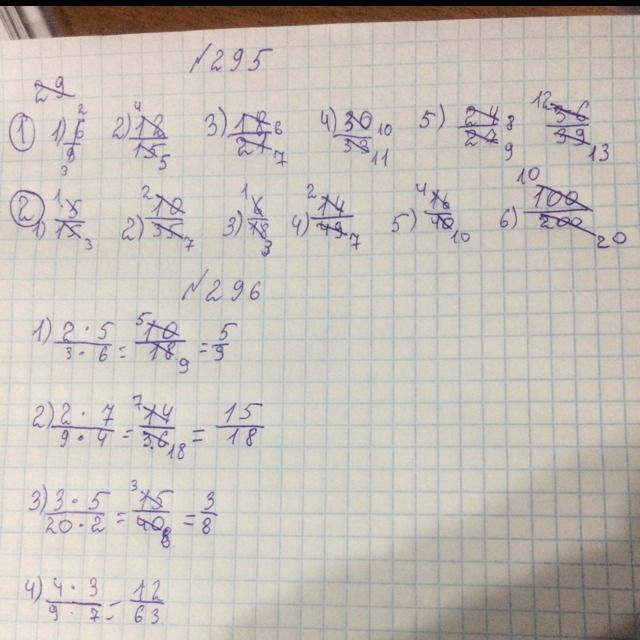 №295
29
① 1) 2 6/9 3 2) 4 12/15 5 3) 18/21 6 7 4) 30/33 10 11 5) 24/27 8 9 12 36/39 13
② 1) 1 5/15 3 2) 2 10/35 7 3) 1 6/18 3 4) 2 14/49 7 5) 4 16/40 10 6) 10 100/200 20
№296
1) 2·5/3·6 = 5 10/18 9 = 5/9
2) 2·7/9·4 = 7 14/36 18 = 15/18
3) 3·5/20·2 = 3 15/40 8 = 3/8
4) 4·3/9·7 = 12/63